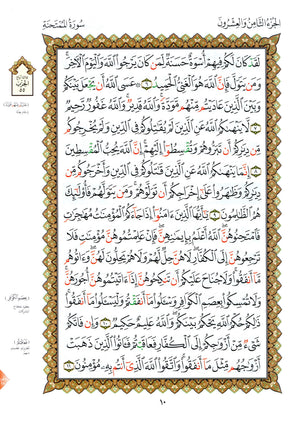 الجزء الثامن والعشرون
سورة الممتحنة
لقد كان لكم فيهم أسوة حسنة لمن كان يرجوا الله واليوم الآخر
ومن يتول فإن الله هو الغني الحميد ٦ عسى الله أن يجعل بينكم
وبين الذين عاديتم منهم مودة والله قدير والله غفور رحيم
٧ لا ينهىكم الله عن الذين لم يقتلوكم في الدين ولم يخرجوكم
من ديركم أن تبروهم وتقسطوا إليهم إن الله يحب المقسطين
٨ إنما ينهىكم الله عن الذين قتلوكم في الدين وأخرجوكم من
ديركم وظهروا على إخراجكم أن تولوهم ومن يتولهم فأولئك
هم الظلمون ٩ يأيها الذين ءامنوا إذا جاءكم المؤمنت مهجرت
فامتحنوهن الله أعلم بإيمنهن فإن علمتموهن مؤمنت فلا
ترجعوهن إلى الكفار لا هن حل لهم ولا هم يحلون لهن وءاتوهم
ما أنفقوا ولا جناح عليكم أن تنكحوهن إذا ءاتيتموهن أجورهن
ولا تمسكوا بعصم الكوافر وسئلوا ما أنفقتم وليسئلوا ما أنفقوا
ذلكم حكم الله يحكم بينكم والله عليم حكيم ١٠ وإن فاتكم
شيء من أزوجكم إلى الكفار فعاقبتم فئاتوا الذين ذهبت
أزوجهم مثل ما أنفقوا واتقوا الله الذي أنتم به مؤمنون ١١
١٠